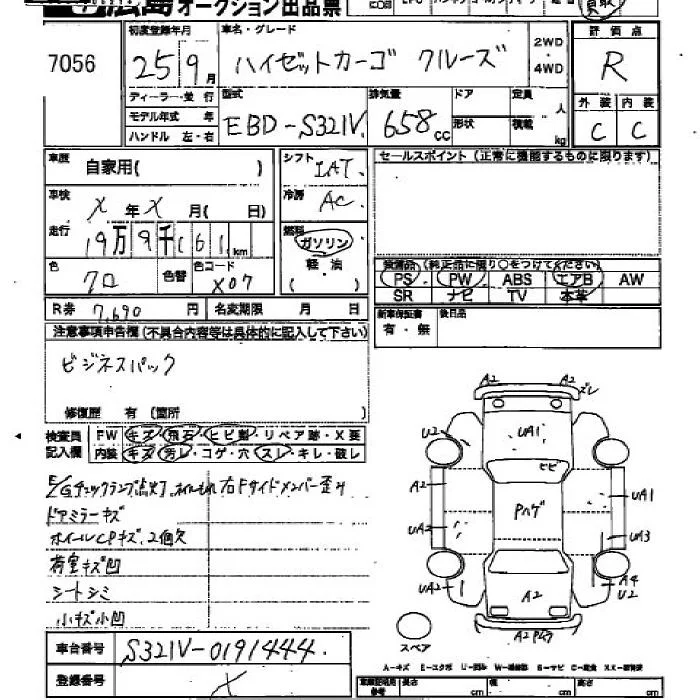 広島オークション出品票
7056
初度登録年月
25 9月
車名・グレード
ハイゼットカーゴ クルーズ
2WD
4WD
評価点
R
ディーラー・並行
モデル年式 年
ハンドル 左・右
型式
EBD-S321V
排気量
658cc
ドア
形状
定員 人
積載 kg
外装 内装
C C
車歴
自家用( )
シフト
IAT
セールスポイント(正常に機能するものに限ります)
車検
X年X月( 日)
冷房
AC
走行
19万9千161km
燃料
ガソリン
軽油
( )
色
クロ
色替
色コード
X07
装備品(純正品に限り○をつけてください)
PS PW ABS エアB AW
SR ナビ TV 本革
R券 7,690円
名変期限 月 日
新車保証書
有・無
後日品
注意事項申告欄(不具合内容等は具体的に記入して下さい)
ビジネスパック
修復歴 有(箇所 )
検査員
記入欄
FW キズ・飛石・ヒビ割・リペア跡・X要
内装 キズ・汚レ・コゲ・穴・スレ・キレ・破レ
E/Gチェックランプ点灯、オイルもれ 右Fサイドメンバー歪み
ドアミラーキズ
ホイールCPキズ、2個欠
荷室キズ凹
シートシミ
小キズ小凹
A2 A2 ズレ
U2 UA1
ヒビ
A2 UA1
Pハゲ
UA2 UA3
UA2 A4
U2
A2
スペア
車台番号
S321V-0191444
登録番号
X
長さ cm 幅 cm 高さ cm